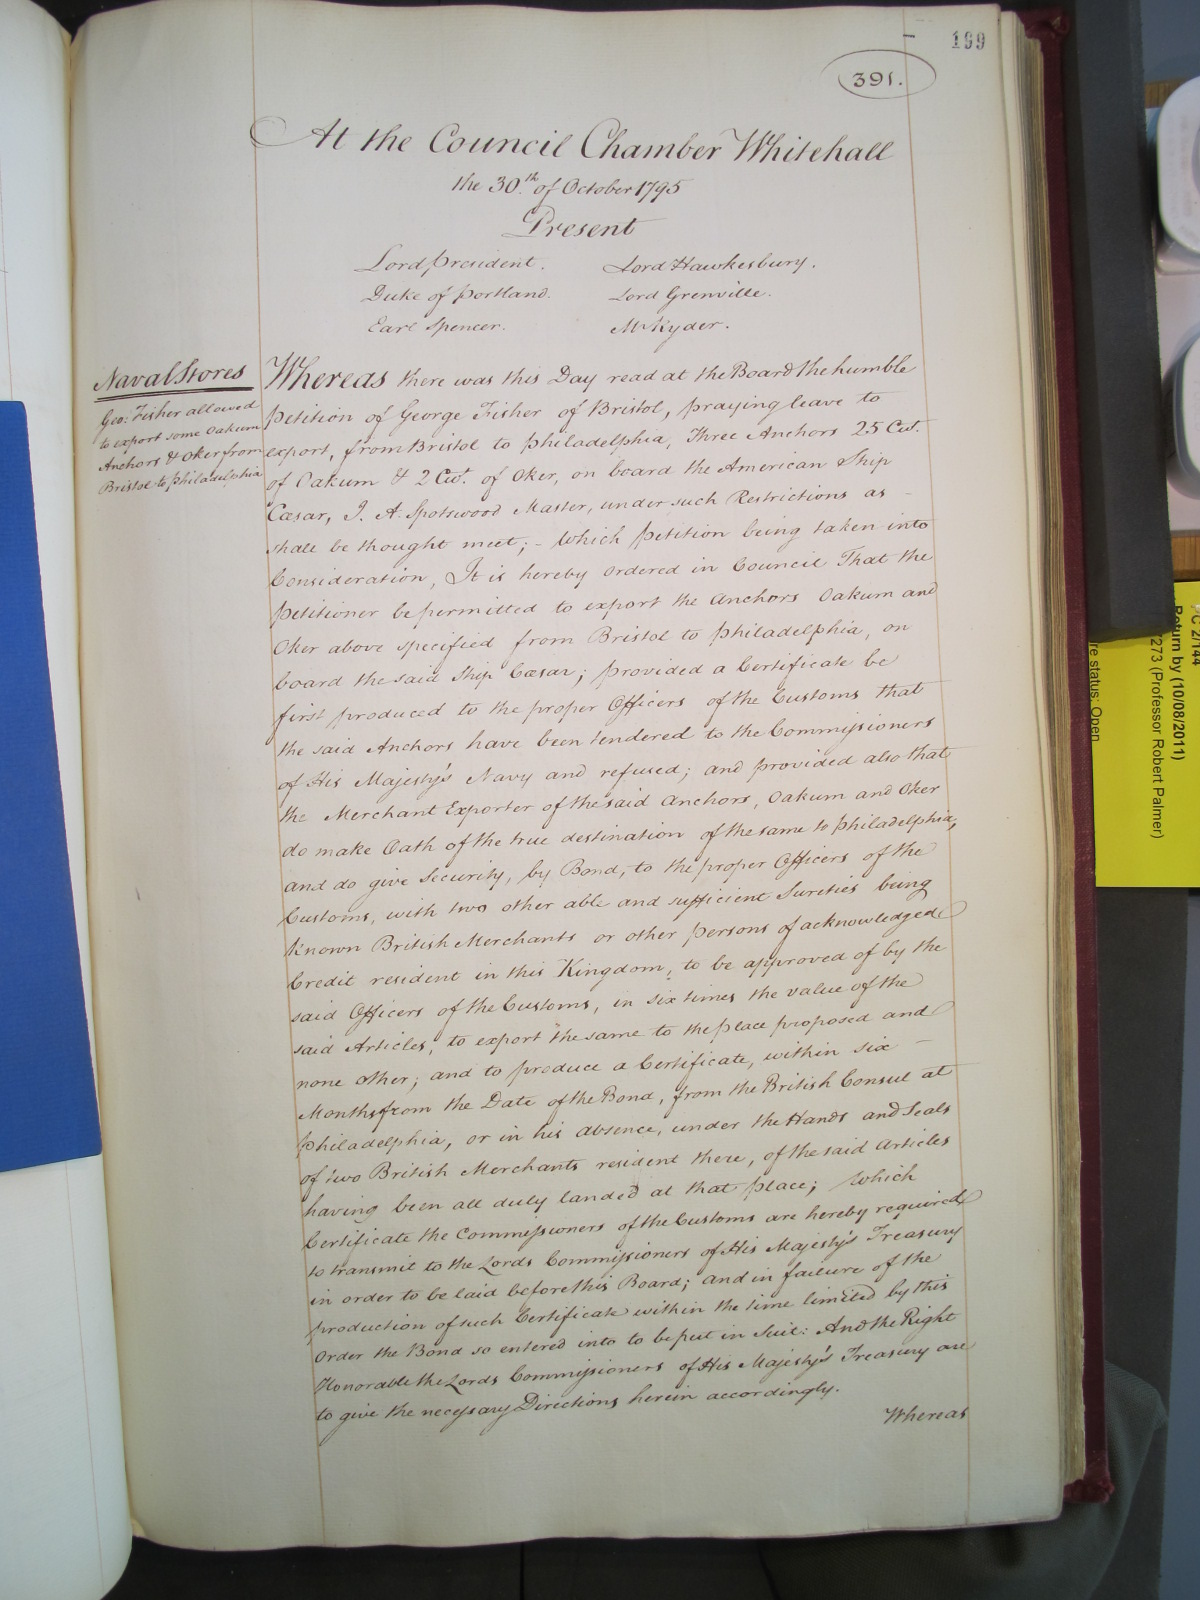 199
391.
At the Council Chamber Whitehall
the 30.th of October 1795
Present
Lord President. Lord Hawkesbury.
Duke of Portland. Lord Grenville.
Earl Spencer. Mr. Ryder.
Naval Stores
Geo: Fisher allowed
to export some Oakum
Anchors & Oker from
Bristol to Philadelphia
Whereas there was this Day read at the Board the humble
Petition of George Fisher of Bristol, praying leave to
export, from Bristol to Philadelphia, Three Anchors 25 Cwt.
of Oakum & 2 Cwt. of Oker, on board the American Ship
Cæsar, J. A. Spotswood Master, under such Restrictions as
shall be thought meet; - Which Petition being taken into
Consideration, It is hereby ordered in Council That the
Petitioner be permitted to export the Anchors Oakum and
Oker above specified from Bristol to Philadelphia, on
board the said Ship Cæsar; provided a Certificate be
first produced to the proper Officers of the Customs that
the said Anchors have been tendered to the Commissioners
of His Majesty's Navy and refused; and provided also that
the Merchant Exporter of the said Anchors, Oakum and Oker
do make Oath of the true destination of the same to Philadelphia,
and do give Security, by Bond, to the proper Officers of the
Customs, with two other able and sufficient Sureties being
known British Merchants or other persons of acknowledged
Credit resident in this Kingdom, to be approved of by the
said Officers of the Customs, in six times the value of the
said Articles, to export the same to the place proposed and
none other; and to produce a Certificate, within six
Months from the Date of the Bond, from the British Consul at
Philadelphia, or in his absence, under the Hands and Seals
of two British Merchants resident there, of the said Articles
having been all duly landed at that place; Which
Certificate the Commissioners of the Customs are hereby required
to transmit to the Lords Commissioners of His Majesty's Treasury
in order to be laid before this Board; and in failure of the
production of such Certificate within the time limited by this
Order the Bond so entered into to be put in Suit: And the Right
Honorable the Lords Commissioners of His Majesty's Treasury are
to give the necessary Directions herein accordingly.
Whereas
PC 2/144
Return by (10/08/2011)
7273 (Professor Robert Palmer)
re status: Open